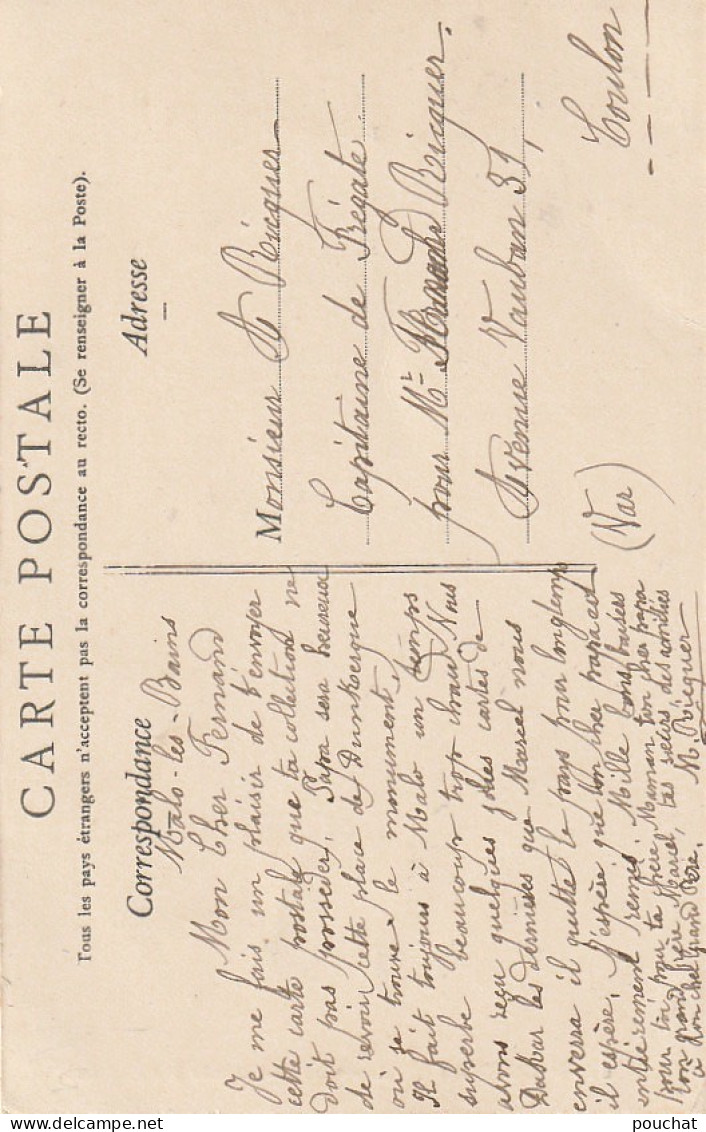 CARTE POSTALE
Tous les pays étrangers n'acceptent pas la correspondance au recto. (Se renseigner à la Poste).
Correspondance
Malo-les-Bains
Mon Cher Fernand
Je me fais un plaisir de t'envoyer
cette carte postale que ta collection ne
doit pas posséder. Papa sera heureux
de revoir cette place de Dunkerque
où se trouve le monument.
Il fait toujours à Malo un temps
superbe beaucoup trop chaud. Nous
avons reçu quelques jolies cartes de
Dakar les dernières que Marcel nous
enverra il quitte le pays pour longtemps
il espère. J'espère que ton cher papa est
entièrement remis. Mille bons baisers
pour toi, pour ta mère, Maman ton cher papa
ton grand frère Marcel, tes sœurs des amitiés
à ton cher grand Père. M. Ricquer
Adresse
Monsieur A Ricquer
Capitaine de Frégate
pour Mr Fernand Ricquer.
Avenue Vauban 39,
Toulon
(Var)
pouchat